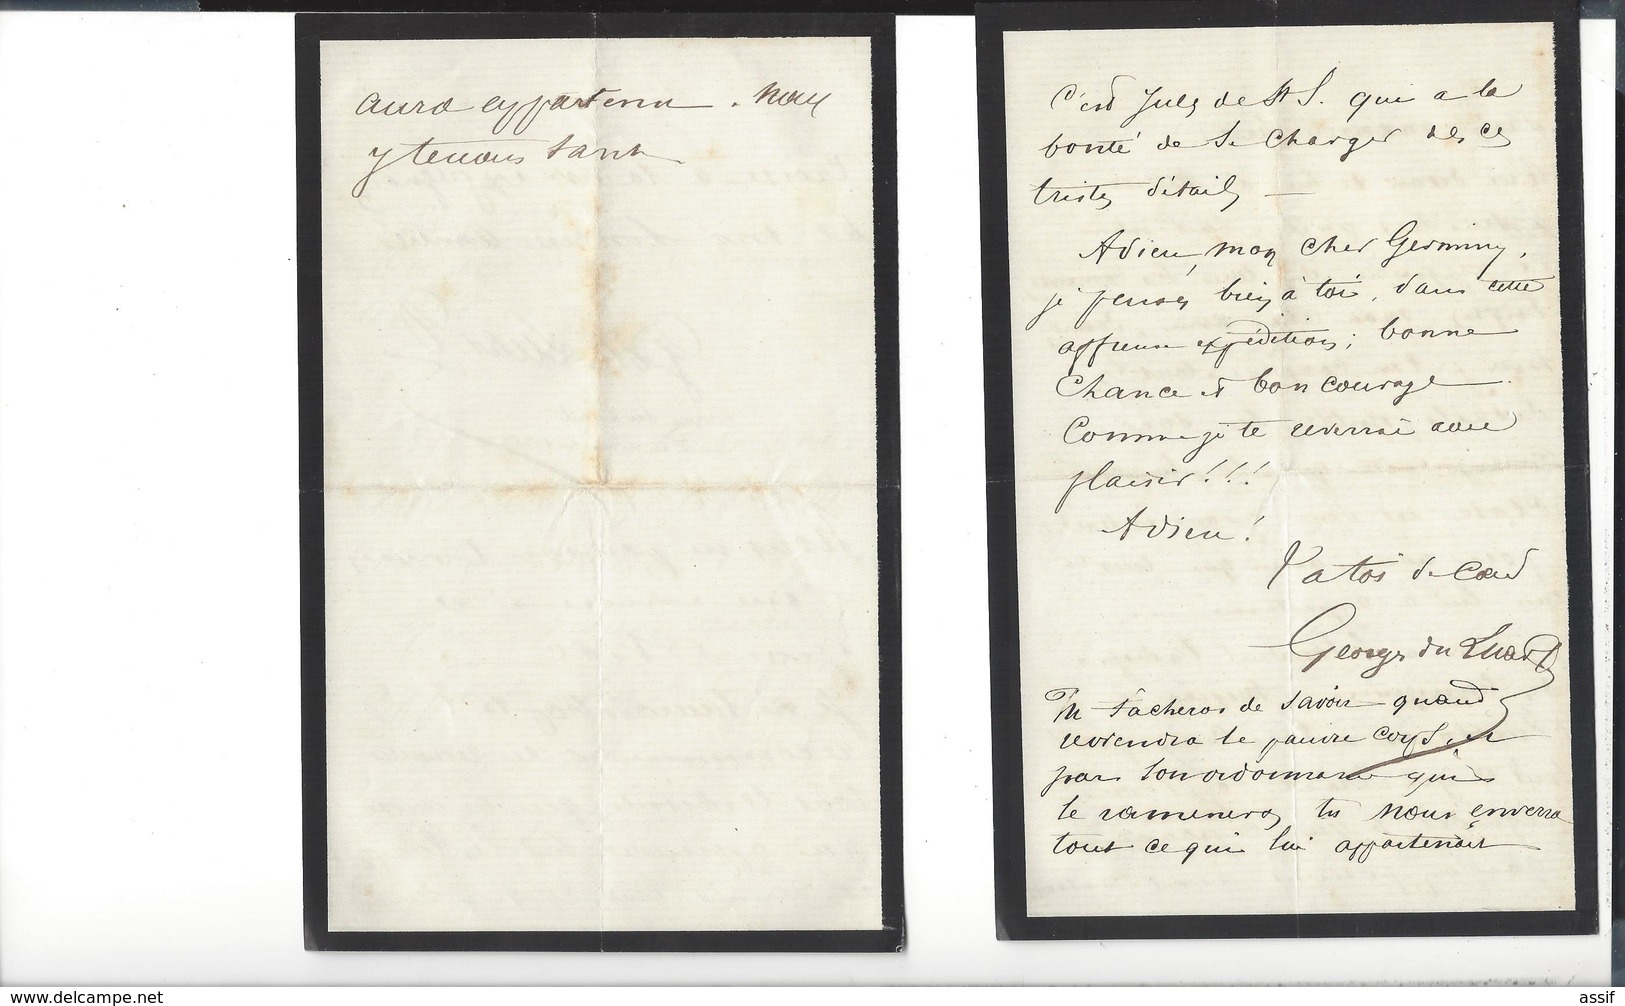 aura appartenu. Nous
y tenons tant.
C'est Jules de St S. qui a la
bonté de se charger de ces
tristes détails —
Adieu, mon cher Germiny,
je pense bien à toi, dans cette
affreuse expédition; bonne
chance et bon courage
Comme je te reverrai avec
plaisir!!!
Adieu!
à toi de coeur
Georges du Luart
Tu tacheras de savoir quand
reviendra le pauvre corps, et
par son ordonnance qui
le ramenera tu nous enverra
tout ce qui lui appartenait
assif